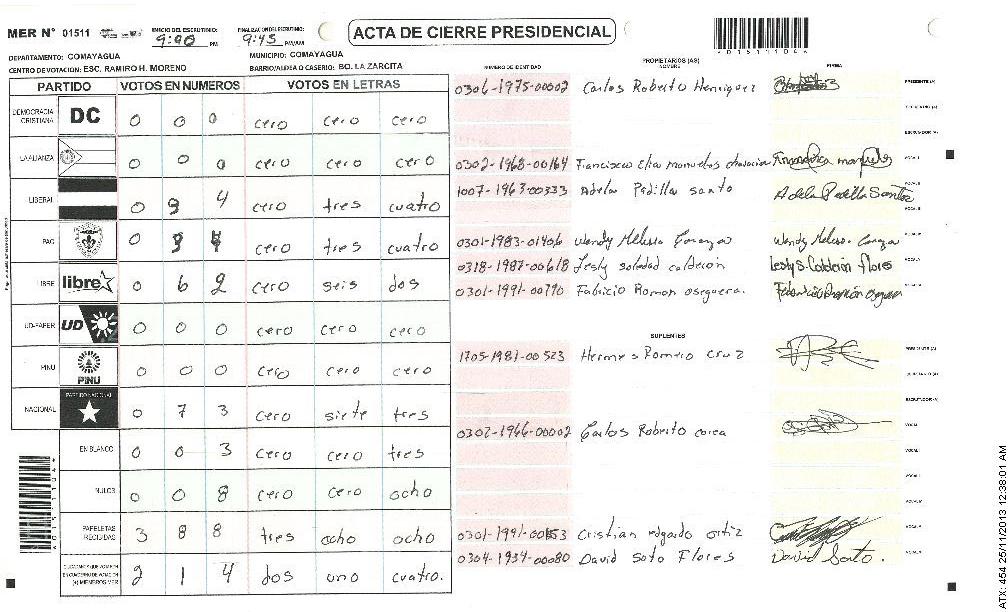 MER N° 01511 INICIO DEL ESCRUTINIO: 9:00 PM FINALIZACION DEL ESCRUTINIO: 9:45 PM/AM ACTA DE CIERRE PRESIDENCIAL
DEPARTAMENTO: COMAYAGUA MUNICIPIO: COMAYAGUA
CENTRO DE VOTACION: ESC. RAMIRO H. MORENO BARRIO/ALDEA O CASERIO: BO. LA ZARCITA
PARTIDO VOTOS EN NUMEROS VOTOS EN LETRAS
DEMOCRACIA CRISTIANA DC 0 0 0 cero cero cero
LA ALIANZA 0 0 0 cero cero cero
LIBERAL 0 3 4 cero tres cuatro
PAC 0 3 4 cero tres cuatro
LIBRE libre 0 6 2 cero seis dos
UD-FAPER UD 0 0 0 cero cero cero
PINU PINU 0 0 0 cero cero cero
NACIONAL PARTIDO NACIONAL 0 7 3 cero siete tres
EN BLANCO 0 0 3 cero cero tres
NULOS 0 0 8 cero cero ocho
PAPELETAS RECIBIDAS 3 8 8 tres ocho ocho
2 1 4 dos uno cuatro.
NUMERO DE IDENTIDAD PROPIETARIOS (AS) NOMBRE FIRMA
0306-1975-00002 Carlos Roberto Henriquez PRESIDENTE (A)
SECRETARIO (A)
ESCRUTADOR (A)
0302-1968-00164 Francisca Elia VOCAL I
1007-1963-00333 Adela Padilla santo Adela Padilla Santos
0301-1983-01406 Wendy Melissa Wendy Melissa
0318-1987-00618 Lesly soledad calderón Lesly S. Calderón Flores
0301-1991-00790 Fabricio Roman oseguera.
SUPLENTES
1705-1981-00523 Hermes Romero cruz PRESIDENTE (A)
SECRETARIO (A)
ESCRUTADOR (A)
0302-1966-00002 Carlos Roberto corea VOCAL
0301-1991-00153 Cristian edgardo ortiz
0304-1934-00080 David Soto Flores David Soto.
ATX: 454 25/11/2013 12:38:01 AM